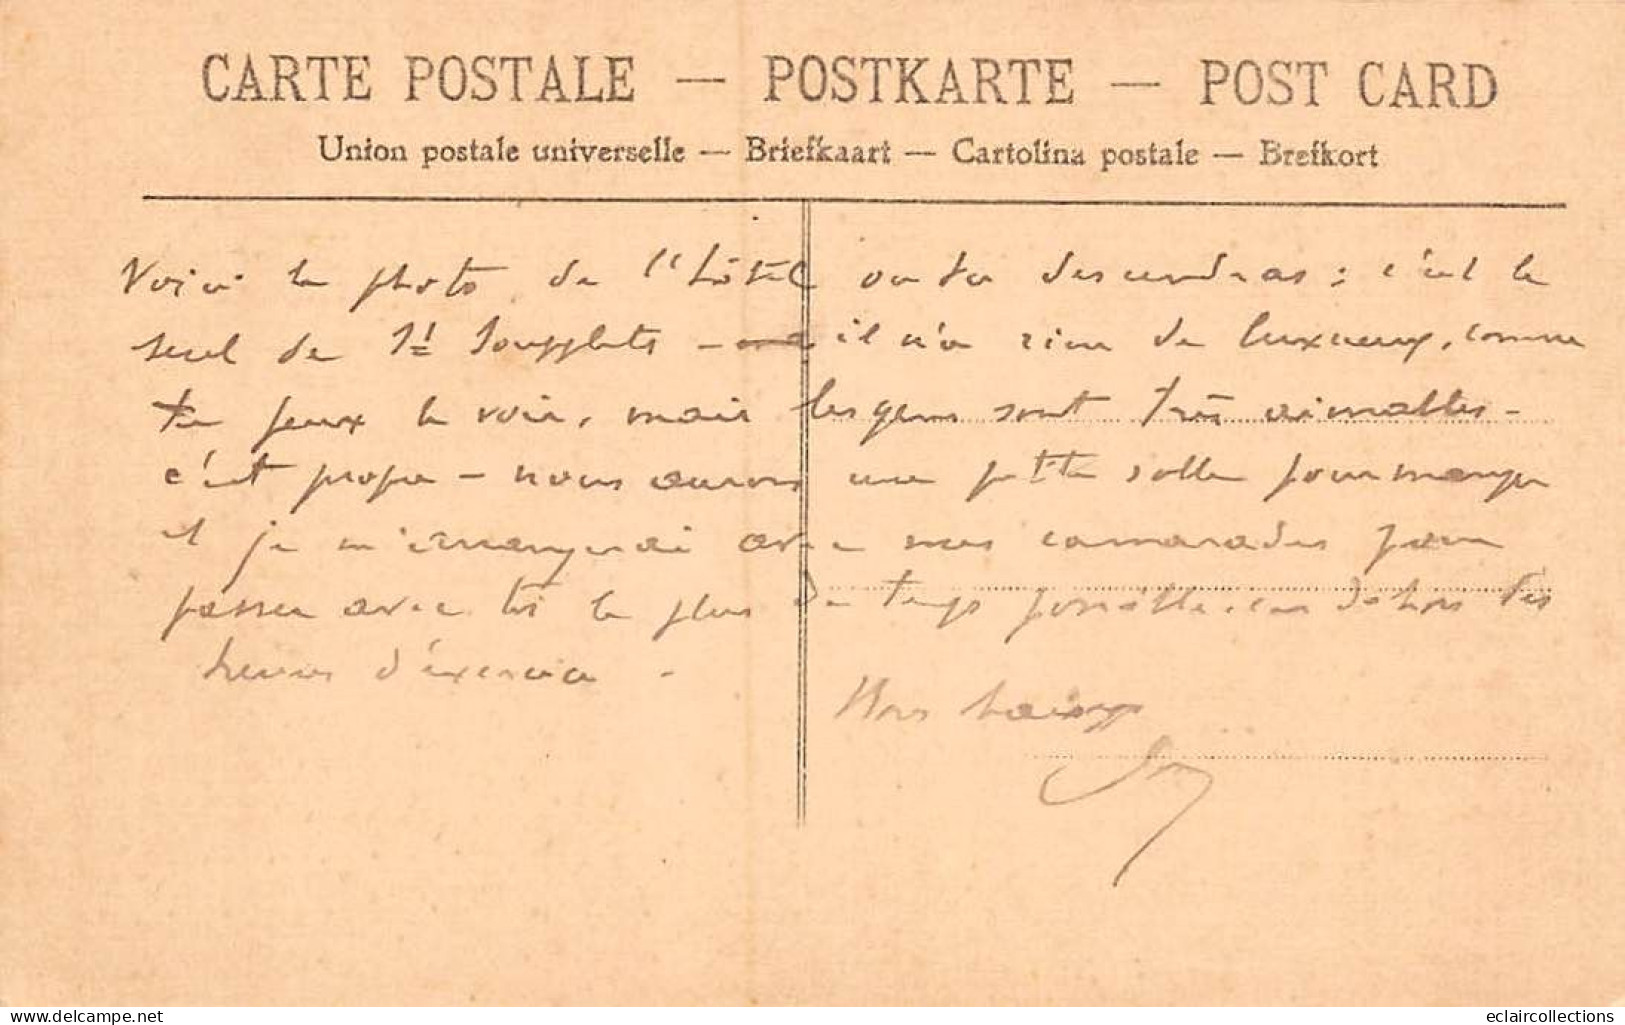 CARTE POSTALE — POSTKARTE — POST CARD
Union postale universelle — Briefkaart — Cartolina postale — Brefkort
Voici la photo de l'hôtel où tu descendras : c'est le
seul de St - il n'a rien de luxueux, comme
tu peux le voir, mais les gens sont très aimables -
c'est propre - nous aurons une petite salle pour manger
et je m'arrangerai avec mes camarades pour
passer avec toi le plus de temps possible, en dehors des
heures d'exercice -
delcampe.net
eclaircollections